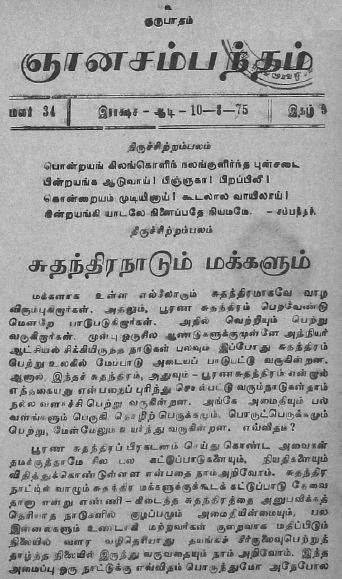 உ
குருபாதம்
ஞானசம்பந்தம்
மலர் 34 இராக்ஷச - ஆடி - 10-8-75 இதழ் 9
திருச்சிற்றம்பலம்
பொன்றயங் கிலங்கொளிந் நலங்குளிர்ந்த புன்சடை
பின்றயங்க ஆடுவாய்! பிஞ்ஞகா! பிறப்பிலீ!
கொன்றையம் முடியினாய்! கூடலால வாயிலாய்!
நின்றயங்கி யாடலே நினைப்பதே நியமமே. - சம்பந்தர்.
திருச்சிற்றம்பலம்
சுதந்திரநாடும் மக்களும்
மக்களாக உள்ள எல்லோரும் சுதந்திரமாகவே வாழ
விரும்புகிறார்கள். அதனும், பூரண சுதந்திரம் பெறவேண்டு
மென்றே பாடுபடுகிறார்கள். அதில் வெற்றியும் பெற்று
வருகிறார்கள். முன்பு ஒருசில ஆண்டுகளுக்குமுன்னே அந்நியர்
ஆட்சியில் சிக்கியிருந்த நாடுகள் பலவும் இப்போது சுதந்திரம்
பெற்று உலகில் மேம்பாடு அடையப் பாடுபட்டு வருகின்றன.
ஆனால், இந்தச் சுதந்திரம், அதுவும் - பூரணசுதந்திரம் என்றால்
எத்தகையது என்பதைப் புரிந்து செயல்பட்டு வரும்நாடுகள்தாம்
நல்ல வளர்ச்சி பெற்று வருகின்றன. அங்கே அமைதியும் பல்
வளங்களும் பெருகி, தொழிற் பெருக்கமும், பொருட்பெருக்கமும்
பெற்று, மேன்மேலும் உயர்ந்து வருகின்றன. எவ்விதம்?
பூரண சுதந்திரப் பிரகடனம் செய்து கொண்ட அவைகள்
தமக்குத்தாமே சில பல கட்டுப்பாடுகளையும், நியதிகளையும்
விதித்துக்கொண்டுள்ளன என்பதை நாம் அறிவோம். சுதந்திர
நாட்டில் வாழும் சுதந்திர மக்களுக்குக்கூடக் கட்டுப்பாடு தேவை
தானா என்று எண்ணி - கிடைத்த சுதந்திரத்தை அனுபவிக்கத்
தெரியாத நாடுகளில் குழப்பமும் அமைதியின்மையும், பல
இன்னல்களும் உண்டாகி மற்றவர்கள் குறைவாக மதிப்பிடும்
நிலையில் வளர வழிதெரியாது தயங்கச் சீர்குலைவுபெற்றுத்
தாழ்ந்த நிலையில் இருந்து வருவதையும் நாம் அறிவோம். இந்த
அமைப்பு ஒரு நாட்டுக்கு எவ்விதம் பொருந்துமோ அதேபோல